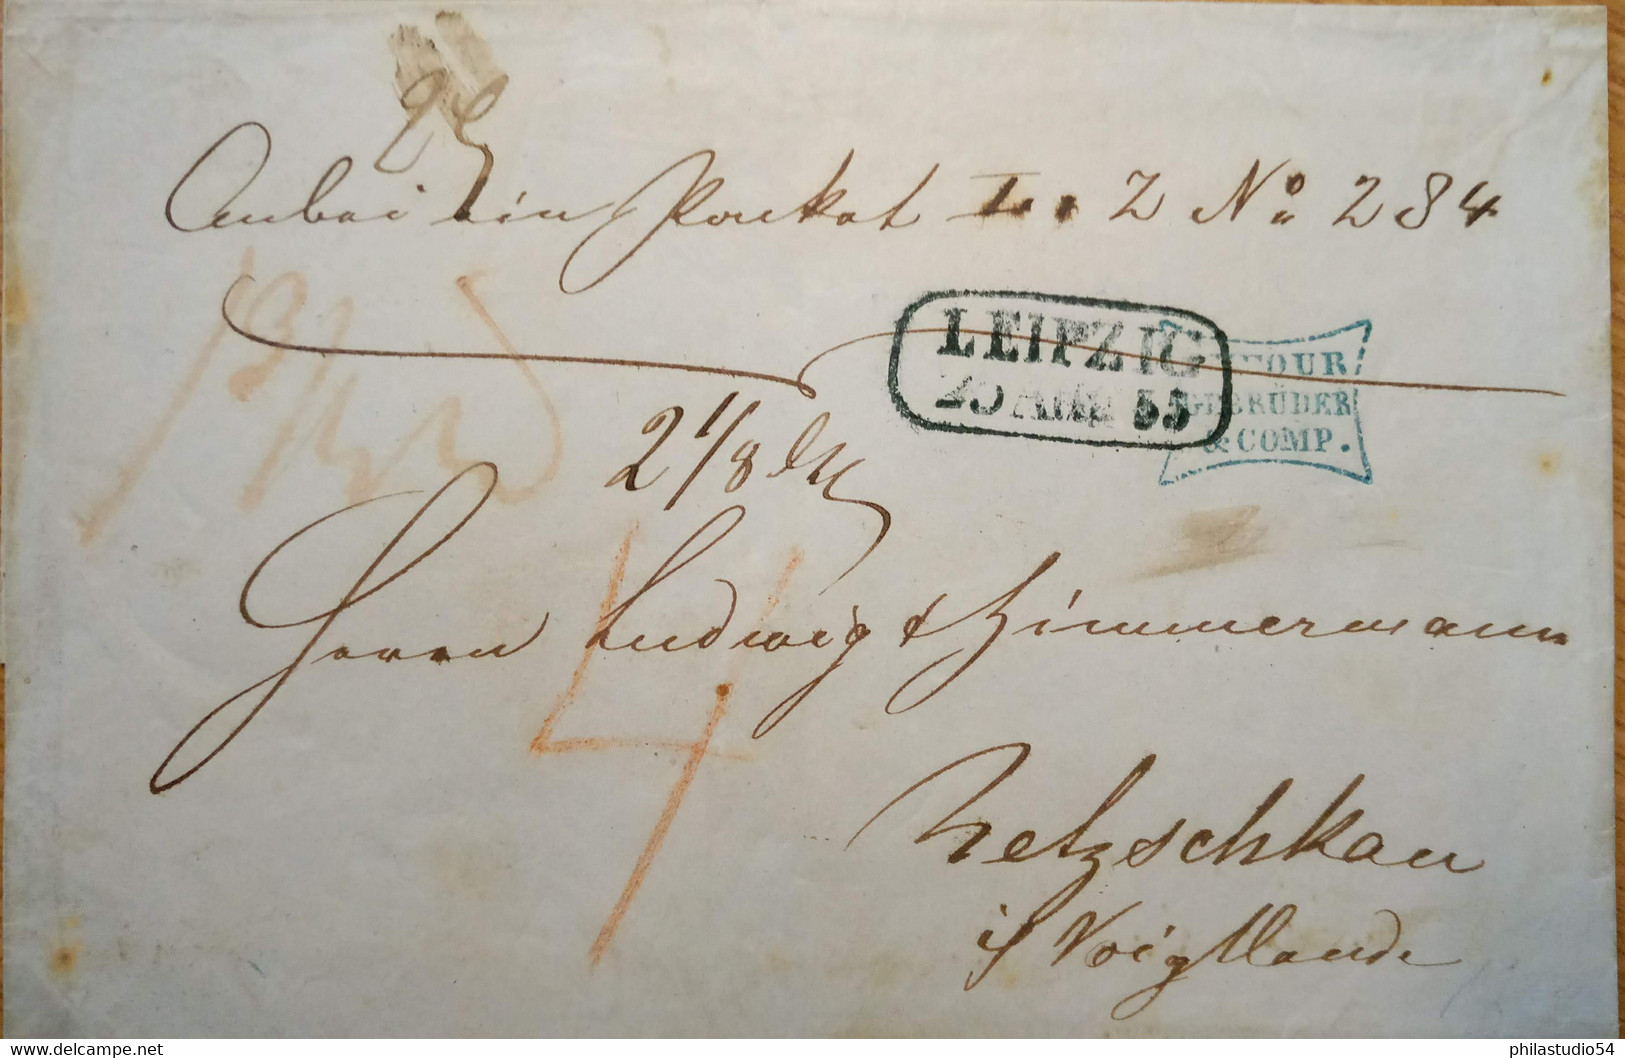 Anbei ein Packet L. Z No. 284
LEIPZIG
25 AUG 55
DUFOUR
GEBRÜDER
& COMP.
2 1/8
Herrn Ludwig & Zimmermann
4
Netzschkau
i/ Voigtlande
philastudio54